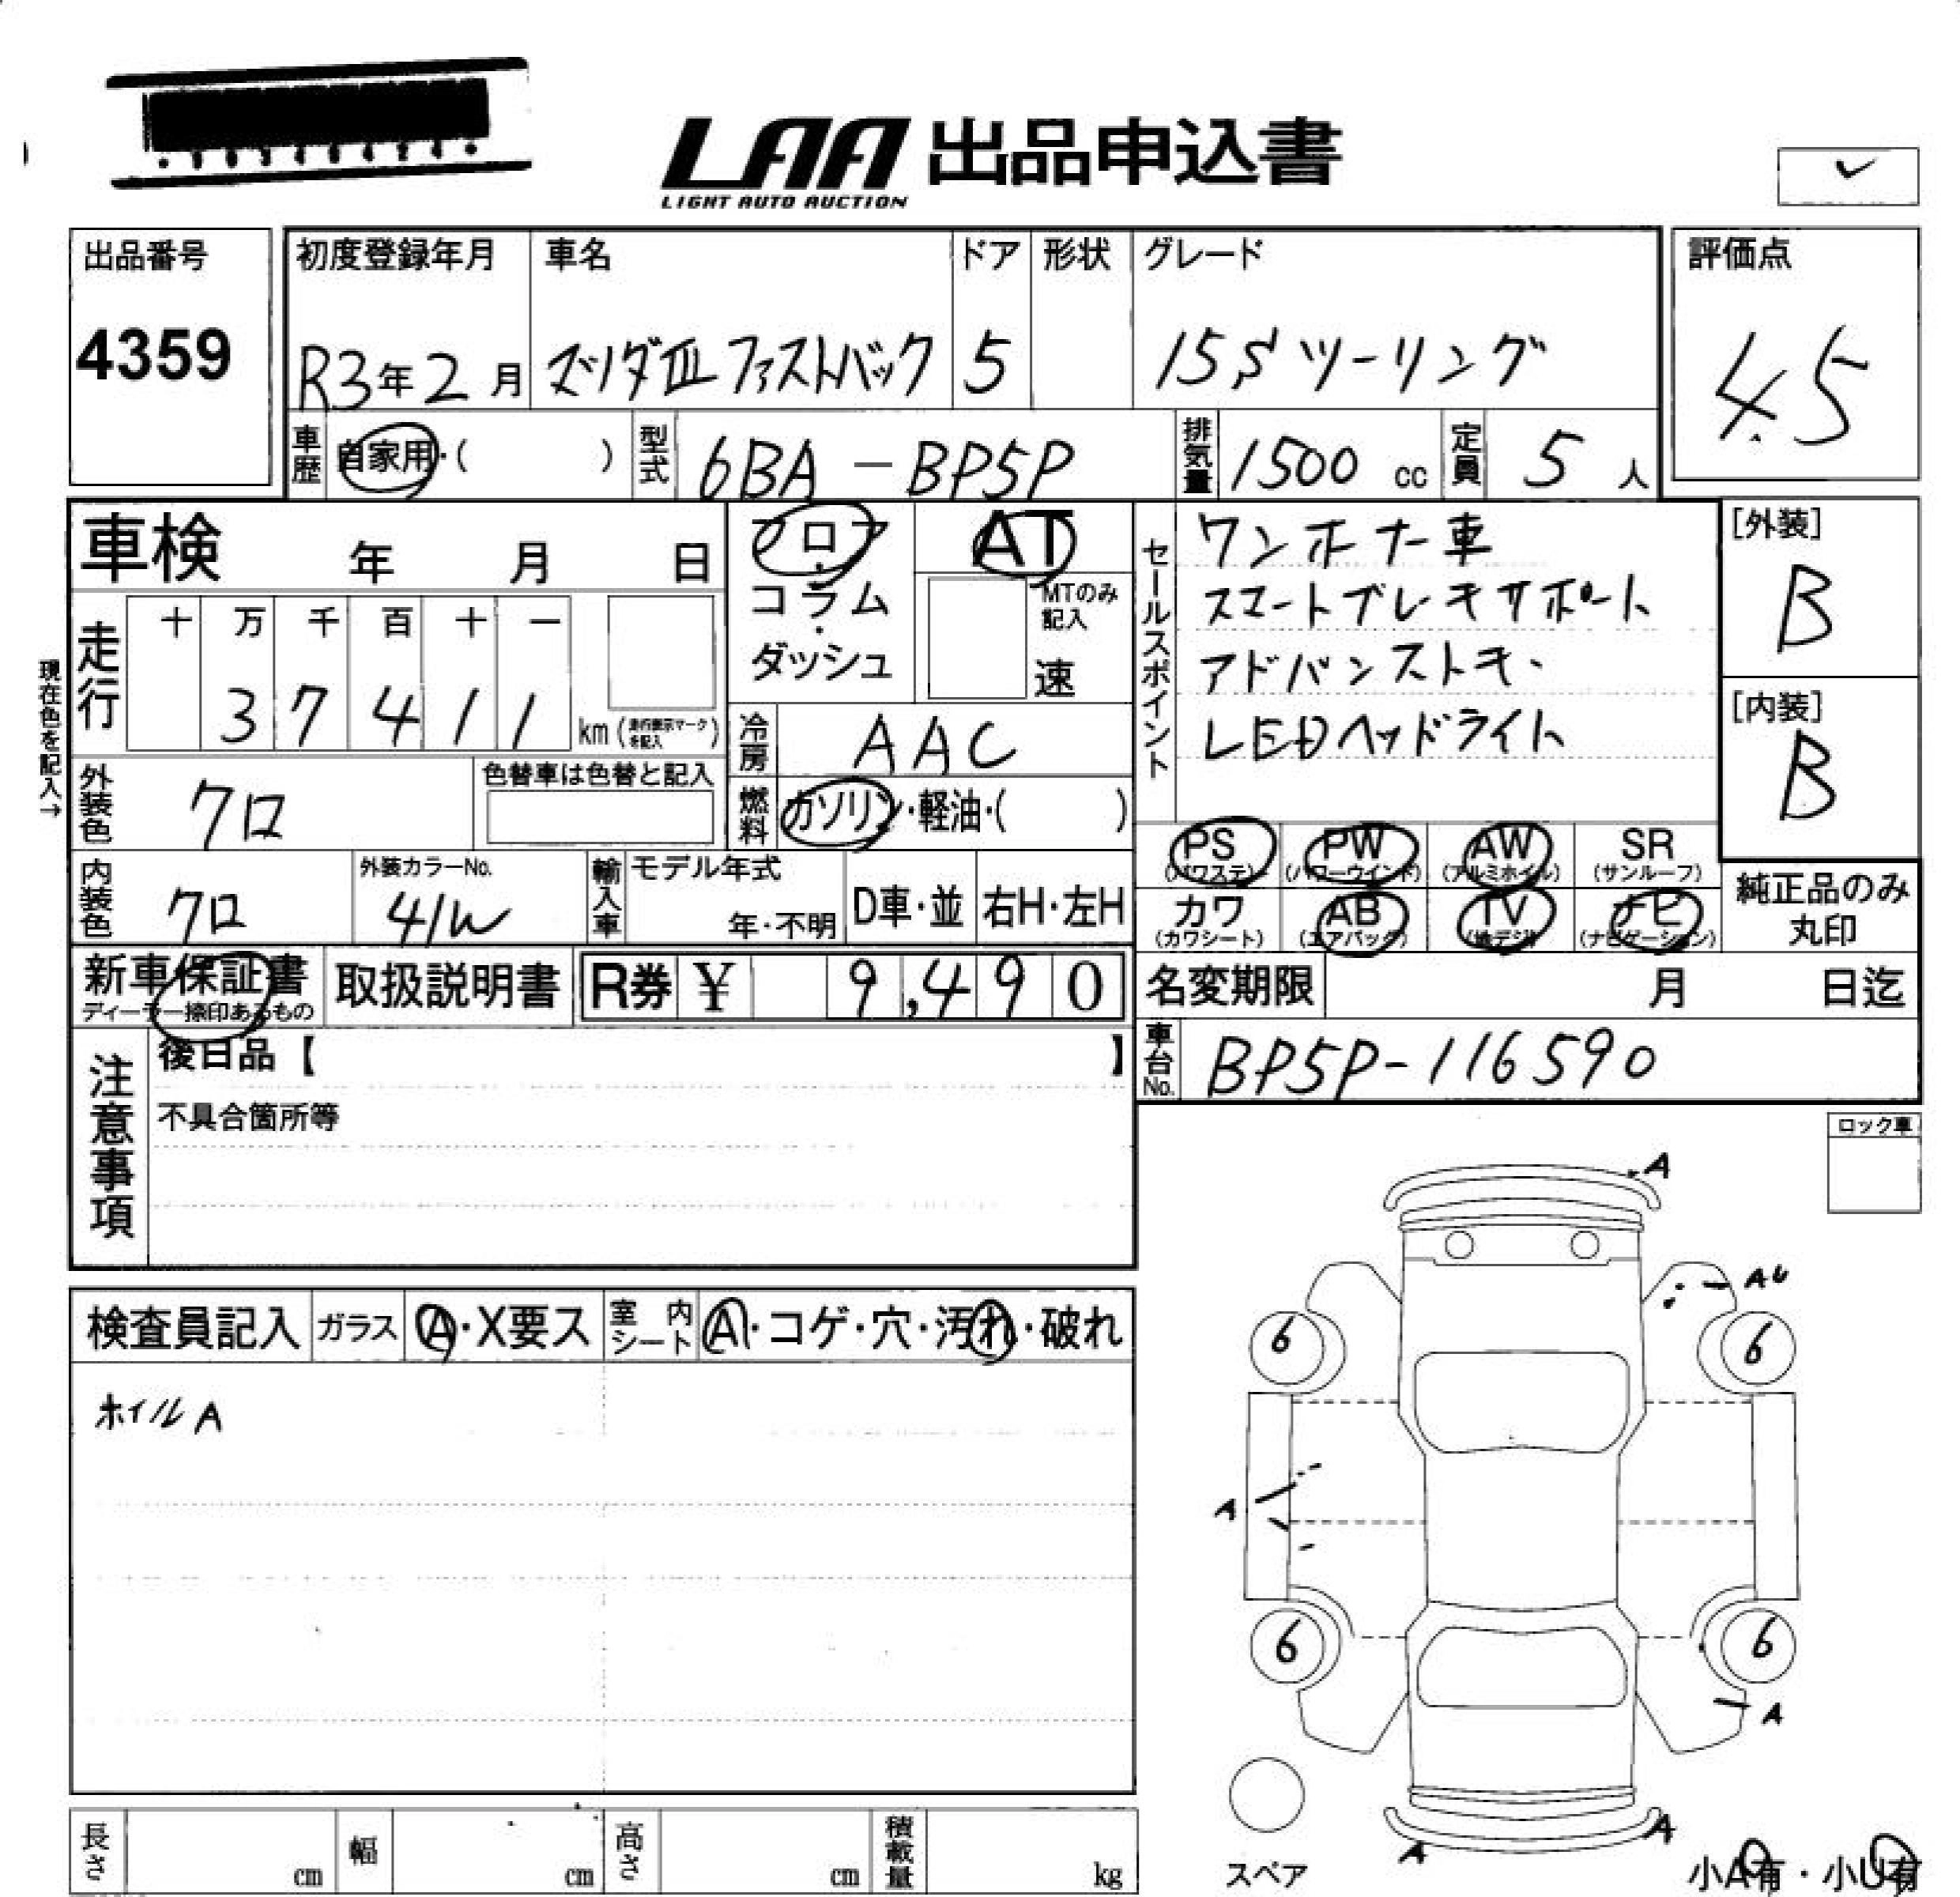 LAA 出品申込書
LIGHT AUTO AUCTION
出品番号
4359
初度登録年月
R3年2月
車名
マツダⅢ ファストバック
ドア
5
形状
グレード
15S ツーリング
評価点
4.5
車歴
自家用・( )
型式
6BA-BP5P
排気量
1500 cc
定員
5 人
車検 年 月 日
走行
十 万 千 百 十 一
3 7 4 1 1
km (走行表示マークを記入)
現在色を記入→
外装色
クロ
色替車は色替と記入
内装色
クロ
外装カラーNo.
41W
フロア・コラム・ダッシュ
AT
MTのみ記入
速
冷房
AAC
燃料
ガソリン・軽油・( )
輸入車
モデル年式
年・不明
D車・並
右H・左H
セールスポイント
ワンオナー車
スマートブレーキサポート
アドバンストキー
LEDヘッドライト
[外装]
B
[内装]
B
PS
(パワステ)
PW
(パワーウインド)
AW
(アルミホイル)
SR
(サンルーフ)
カワ
(カワシート)
AB
(エアバック)
TV
(地デジ)
ナビ
(ナビゲーション)
純正品のみ
丸印
新車保証書
ディーラー捺印あるもの
取扱説明書
R券 ¥ 9,490
名変期限 月 日迄
車台No.
BP5P-116590
注意事項
後日品【 】
不具合箇所等
ロック車
検査員記入
ガラス
A・X要ス
室内シート
A・コゲ・穴・汚れ・破れ
ホイルA
A
AU
6
6
A
6
6
A
A
A
スペア
小A有・小U有
長さ cm
幅 cm
高さ cm
積載量 kg